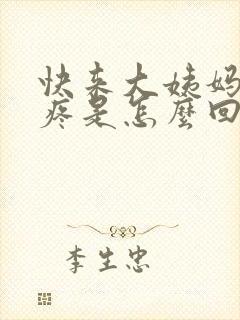 快来大姨妈
疼是怎麽回
李生忠